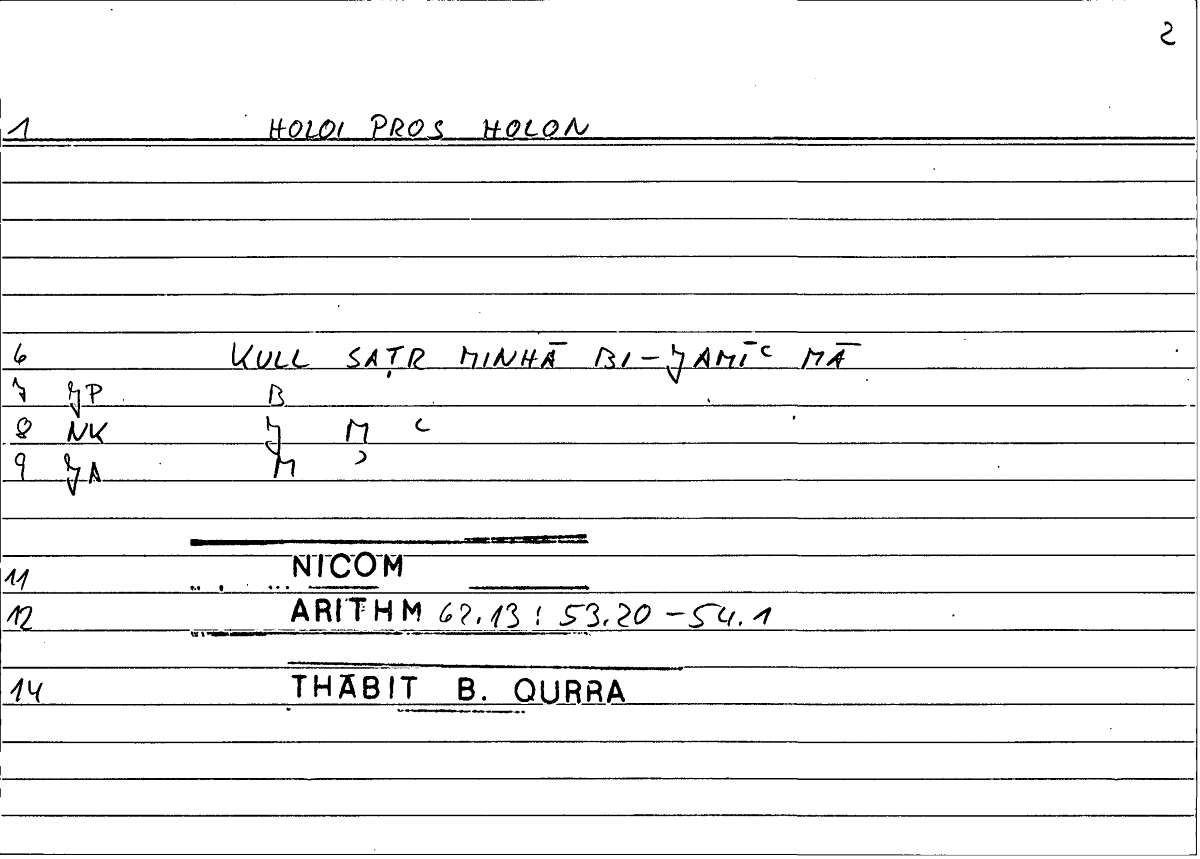 2
1 HOLOI PROS HOLON
6 KULL SAṬR MINHĀ BI-JAMĪʿ MĀ
7 JP B
8 NK J M ʿ
9 JA M ʾ
11 NICOM
12 ARITHM 62.13 : 53.20-54.1
14 THĀBIT B. QURRA